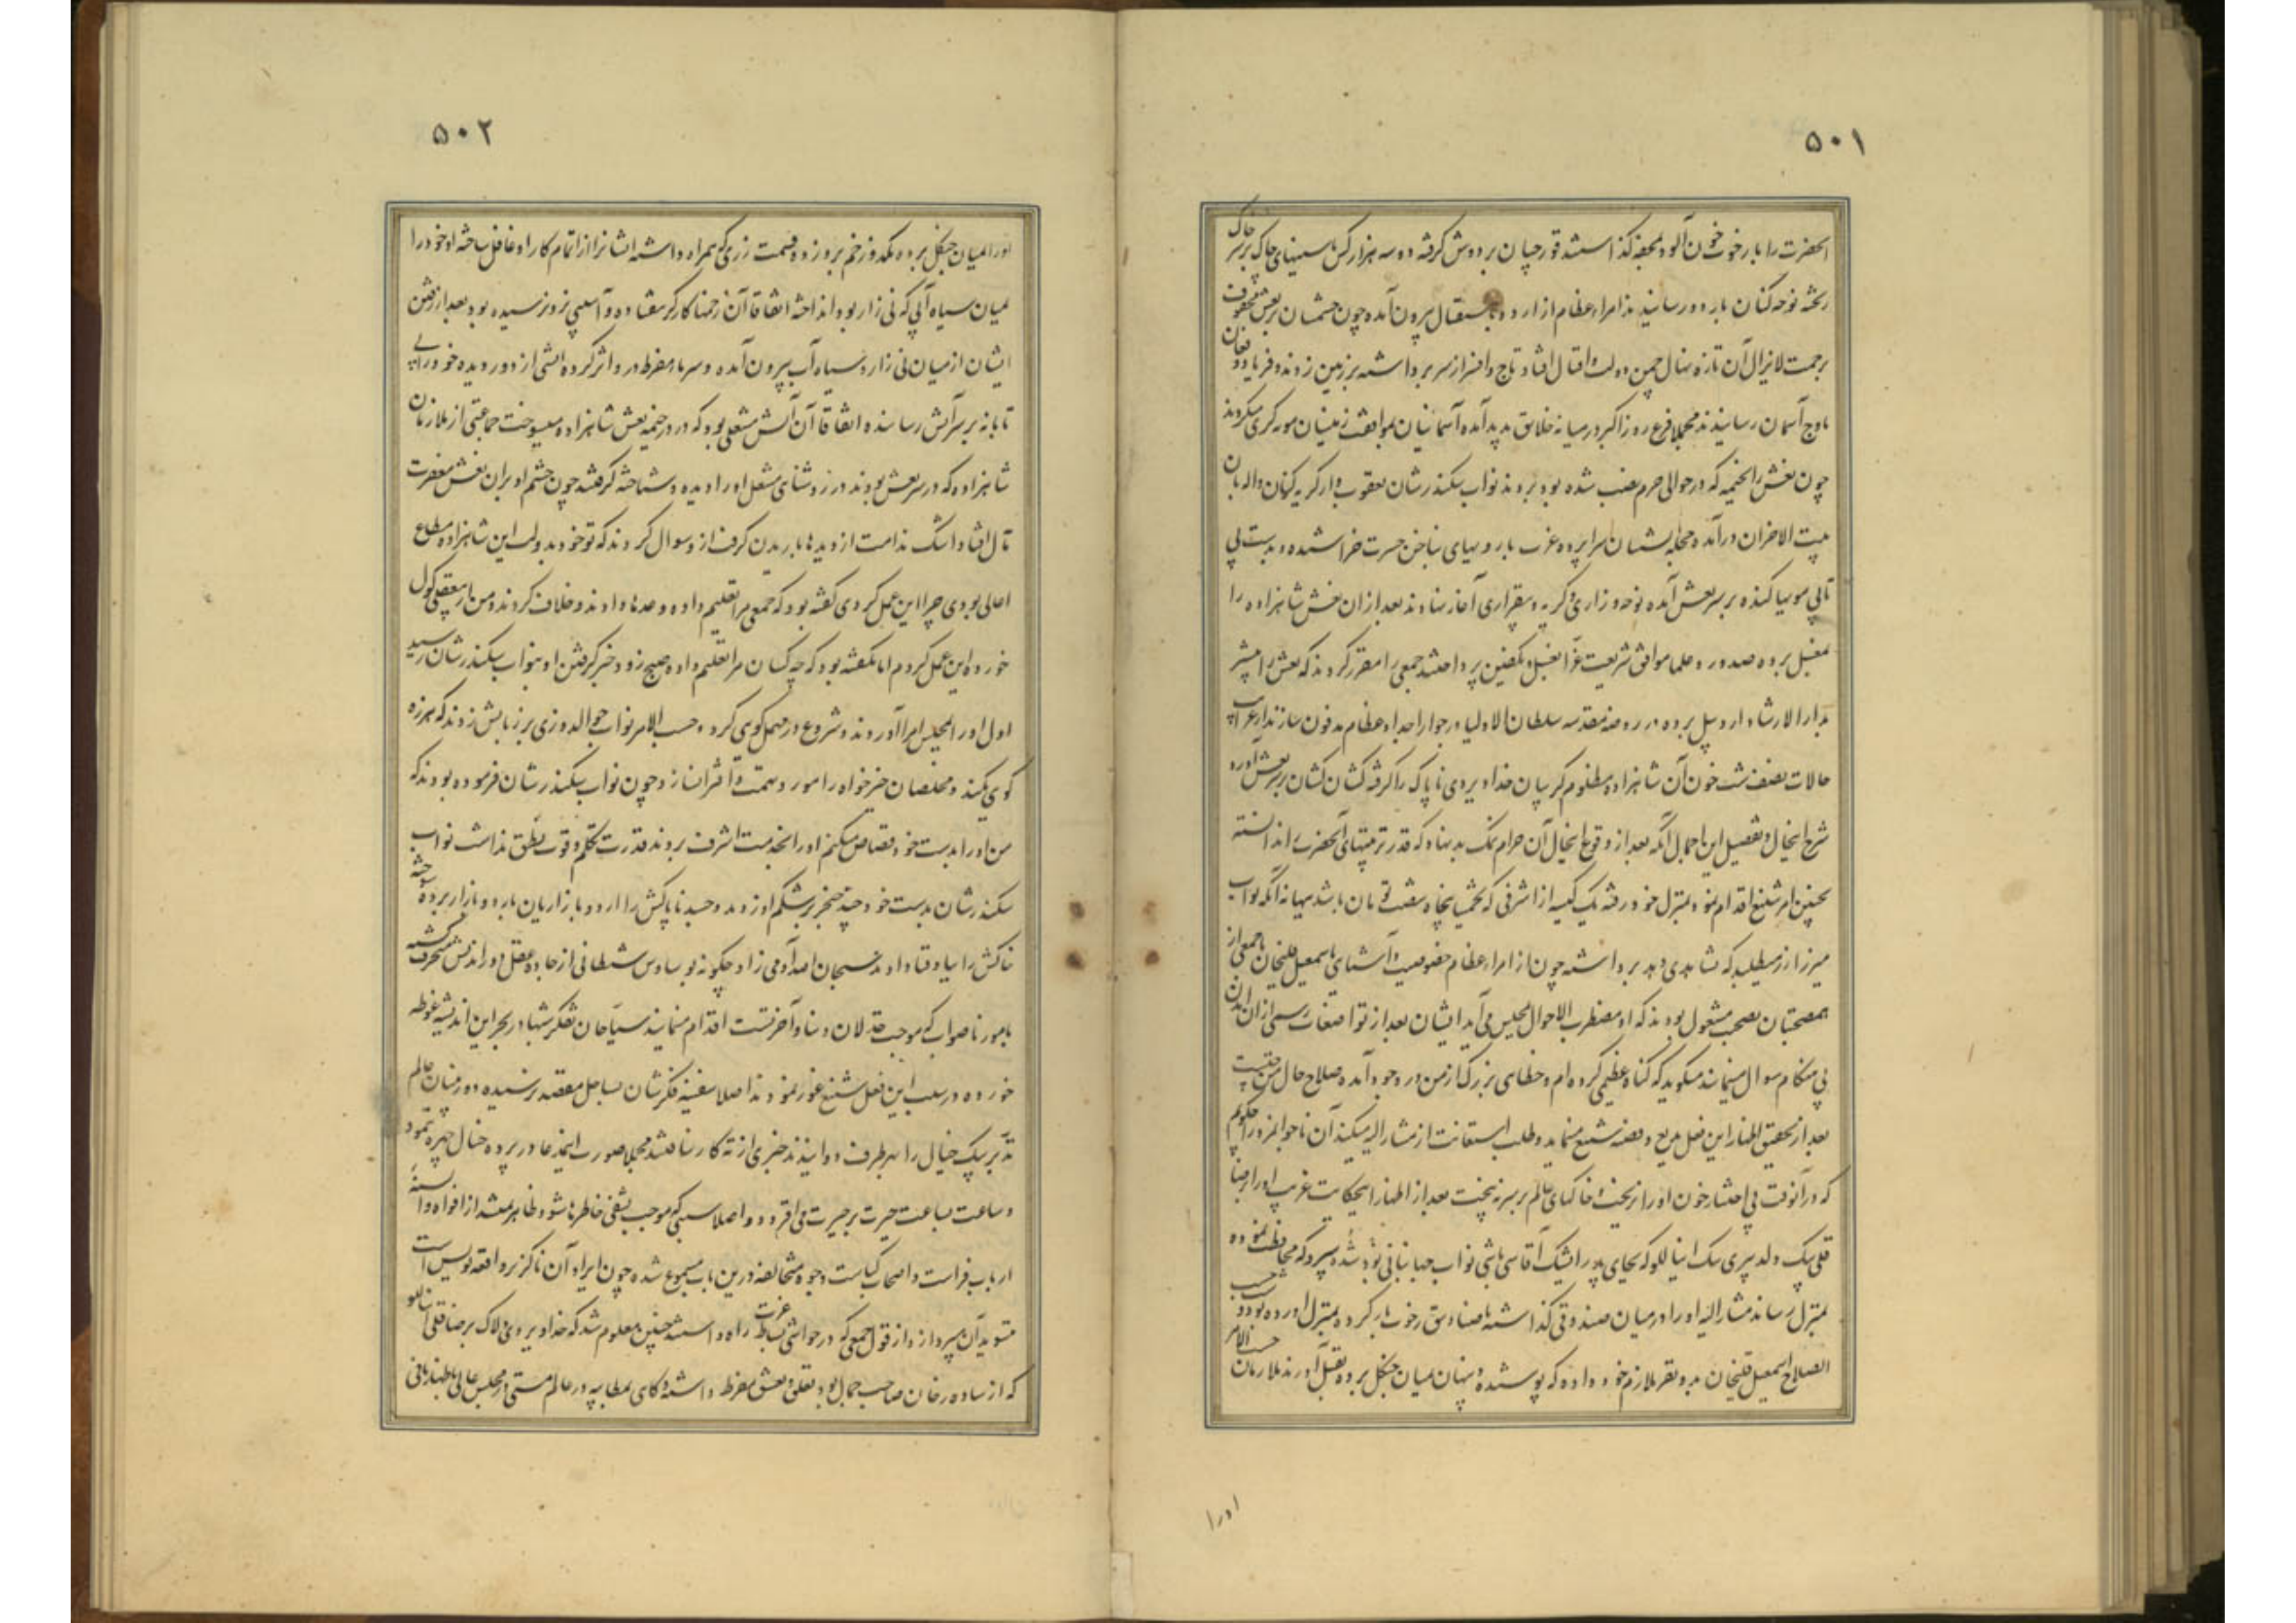 ۵۰۱
انحضرت را با رخوت خون آلود بمحفه گذاشتند قورچیان بر دوش گرفته دو سه هزار کس با سینهای چاک خاک بر سر
ریخته نوحه کنان باردو رسانیدند امراء عظام از اردو باستقبال بیرون آمده چون چشمشان بر نعش محفوف
برحمت لایزال آن تازه نهال چمن دولت و اقبال افتاد تاج و افسر از سر برداشته بر زمین زدند و فریاد و فغان
باوج آسمان رسانیدند مجملا فزع روز اکبر در میانه خلایق پدید آمده آسمانیان بموافقت زمینیان مویه گری میکردند
چون نعش را بخیمه که در حوالی حرم نصب شده بود بردند نواب سکندرشان یعقوب وار گریه کنان و اله بان
بیت الاحزان درآمده مخدرات سراپرده عزت با رویهای بناخن حسرت خراشیده و بدست بی
تابی مویها کنده بر سر نعش آمده نوحه و زاری و گریه و بیقراری آغاز نهادند بعد از ان نعش شاهزاده را
بمغسل برده صدور و علما موافق شریعت غرا بغسل و تکفین پرداختند جمعی را مقرر کردند که نعش را پیشتر
بدار الارشاد اردبیل برده در روضه مقدسه سلطان الاولیا در جوار اجداد عظام مدفون سازند از غرایب
حالات نصف شب خون آن شاهزاده مظلوم گریبان خداویردی ناپاک را گرفته کشان کشان بر سر نعش آورد
شرح اینحال و تفصیل این اجمال آنکه بعد از وقوع اینحال آن حرام نمک بد نهاد که قدر تربیتهای آنحضرت را ندانسته
بچنین امر شنیع اقدام نمود بمنزل خود رفته یک کیسه از اشرفی که تخمینا پنجاه شصت تومان باشد ببهانه آنکه نواب
میرزا زر میطلبد که بشاهدی دهد برداشته چون از امراء عظام خصوصیت و آشنایی باسمعیل قلیخان با جمعی از
همصحبتان بصحبت مشغول بودند که او مضطرب الاحوال بمجلس می آید ایشان بعد از تواضعات رسمی از ان آمدن
بی هنگام سوال مینمایند میگوید که گناه عظیمی کرده ام و خطای بزرگ از من در وجود آمده صلاح حال من چیست
بعد از تحقیق اظهار این فعل بدیع و قصه شنیع مینماید و طلب استعانت از مشار الیه میکند آن ناجوانمرد را چگویم
که در آنوقت بی اختیار خون او را نریخت و خاکهای عالم بر سر نبیخت بعد از اظهار اینحکایت غریب او را برضا
قلی بیک ولد پیری بیک اینانلو که بجای پدر ایشیک آقاسی باشی نواب جهانبانی بود شده سپرد که محافظت نموده
بمنزل رساند مشار الیه او را در میان صندوقی گذاشته با صنادیق رخوت بار کرده بمنزل آورده بود و حسب
الصلاح اسمعیل قلیخان بدو نفر ملازم خود داده که پوشیده و پنهان میان جنگل برده بقتل آورند ملازمان حسب الامر
او را
۵۰۲
او را بمیان جنگل برده یکدو زخم برو زده قسمت زری که همراه داشته ایشانرا از اتمام کار او غافل ساخته او خود را
بمیان سیاه آبی که نی زار بود انداخته اتفاقا آن زخمها کارگر نیفتاده و آسیبی زو نرسیده بود بعد از رفتن
ایشان از میان نی زار و سیاه آب بیرون آمده و سرما مفرط در و اثر کرده آتشی از دور دیده خود را بی
تابانه بر سر آتش رسانیده اتفاقا آن آتش مشعلی بود که در در خیمه نعش شاهزاده میسوخت جماعتی از ملازمان
شاهزاده که در سر نعش بودند در روشنای مشعل او را دیده و شناخته گرفتند چون چشم او بران نعش مغفرت
مآل افتاد اشک ندامت از دیدها باریدن گرفت ازو سوال کردند که تو خود بدولت این شاهزاده مطاع
اهالی بودی چرا این عمل کردی گفته بود که جمعی مرا تعلیم داده وعدها دادند و خلاف کردند و من از بیعقلی گول
خورده این عمل کردم اما نگفته بود که چه کسان مرا تعلیم داده صبح زود خبر گرفتن او بنواب سکندرشان رسید
اول او را بمجلس امرا آوردند و شروع در مهمل گوی کرد حسب الامر نواب جوالدوزی بر زبانش زدند که هرزه
گوی نکند و مخلصان خیرخواه را مورد تهمت و افترا نسازد چون نواب سکندرشان فرموده بودند که
من او را بدست خود قصاص میکنم او را بخدمت اشرف بردند قدرت تکلم و قوت نطق نداشت نواب
سکندرشان بدست خود چند خنجر بر شکم او زدند و جسد ناپاکش را اردو بازاریان باردو بازار برده سوخته
خاکش را بباد فنا دادند سبحان الله آدمی زاد چگونه بوساوس شیطانی از جاده عقل دور اندیش منحرف گشته
بامور ناصواب که موجب خذلان دنیا و آخرتست اقدام مینمایند سیاحان تفکر شبها در بحر این اندیشه غوطه
خورده در سبب این فعل شنیع غور نمودند اصلا سفینه فکرشان بساحل مقصد نرسیده دوربینان عالم
تدبر پیک خیال را بهر طرف دوانیدند خبری از ته کار نیافتند مجملا صورت اینمدعا در پرده خیال چهره ننمود
و ساعت بساعت حیرت بر حیرت می افزود و اصلا سببی که موجب تشفی خاطر باشد ظاهر نشد از افواه و السنه
ارباب فراست و اصحاب کیاست وجوه مختلفه درین باب مسموع شده چون ایراد آن ناگزیر واقعه نویس است
بتسوید آن میپردازد از قول جمعی که در حواشی بساط عزت راه داشتند چنین معلوم شد که خداویردی دلاک بر رضا قلی اینانلو
که از ساده رخان صاحب جمال بود تعلق و تعشق مفرط داشته گاهی بمطایبه در عالم مستی در مجلس عالی باظهار مافی